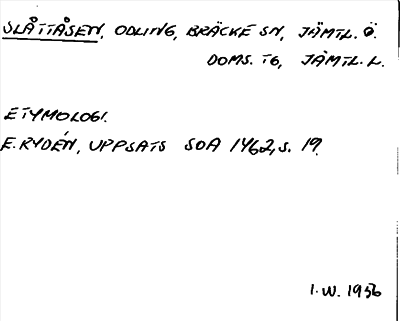 SLÅTTÅSEN, ODLING, BRÄCKE SN, JÄMTL. Ö.
DOMS. TG, JÄMTL. L.
ETYMOLOGI.
E. RYDÉN, UPPSATS SOA 1462, S. 19.
I. W. 1956